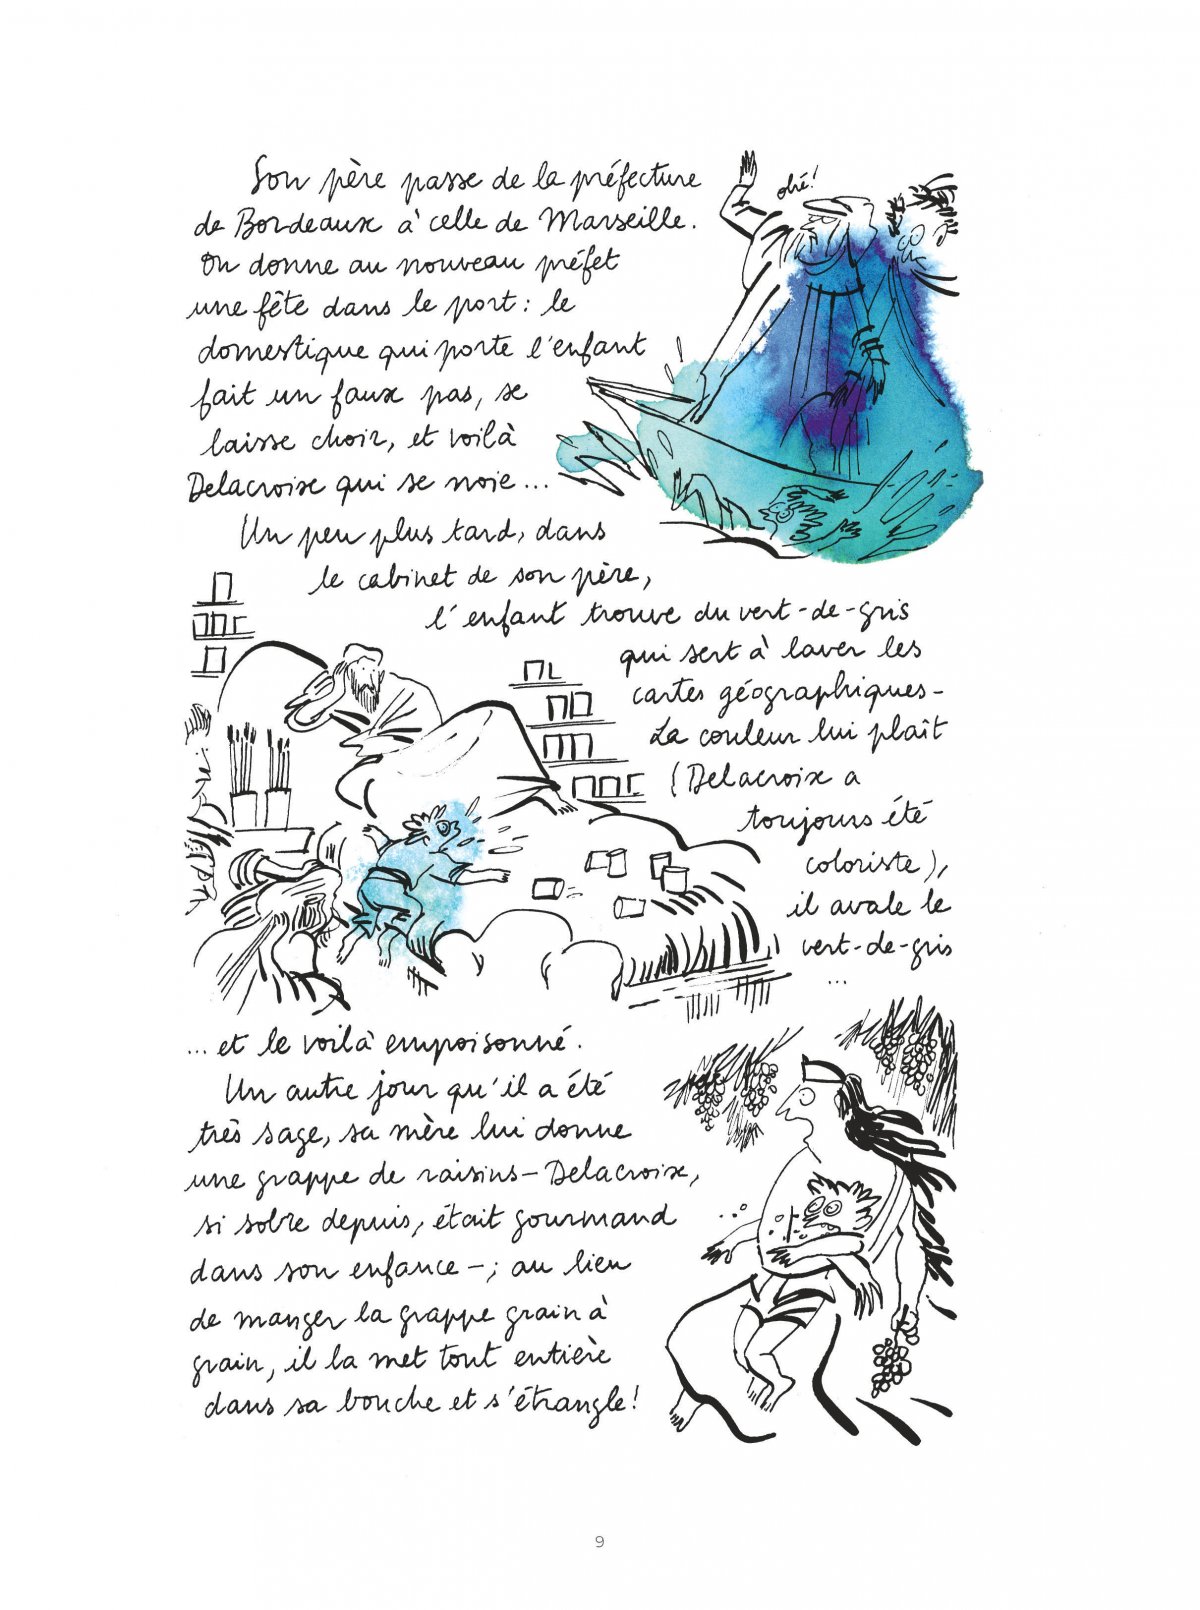 Son père passe de la préfecture
de Bordeaux à celle de Marseille.
On donne au nouveau préfet
une fête dans le port : le
domestique qui porte l'enfant
fait un faux pas, se
laisse choir, et voilà
Delacroix qui se noie...
ohé !
Un peu plus tard, dans
le cabinet de son père,
l'enfant trouve du vert-de-gris
qui sert à laver les
cartes géographiques -
La couleur lui plaît
(Delacroix a
toujours été
coloriste),
il avale le
vert-de-gris
...
... et le voilà empoisonné.
Un autre jour qu'il a été
très sage, sa mère lui donne
une grappe de raisins - Delacroix,
si sobre depuis, était gourmand
dans son enfance - ; au lieu
de manger la grappe grain à
grain, il la met tout entière
dans sa bouche et s'étrangle !
9